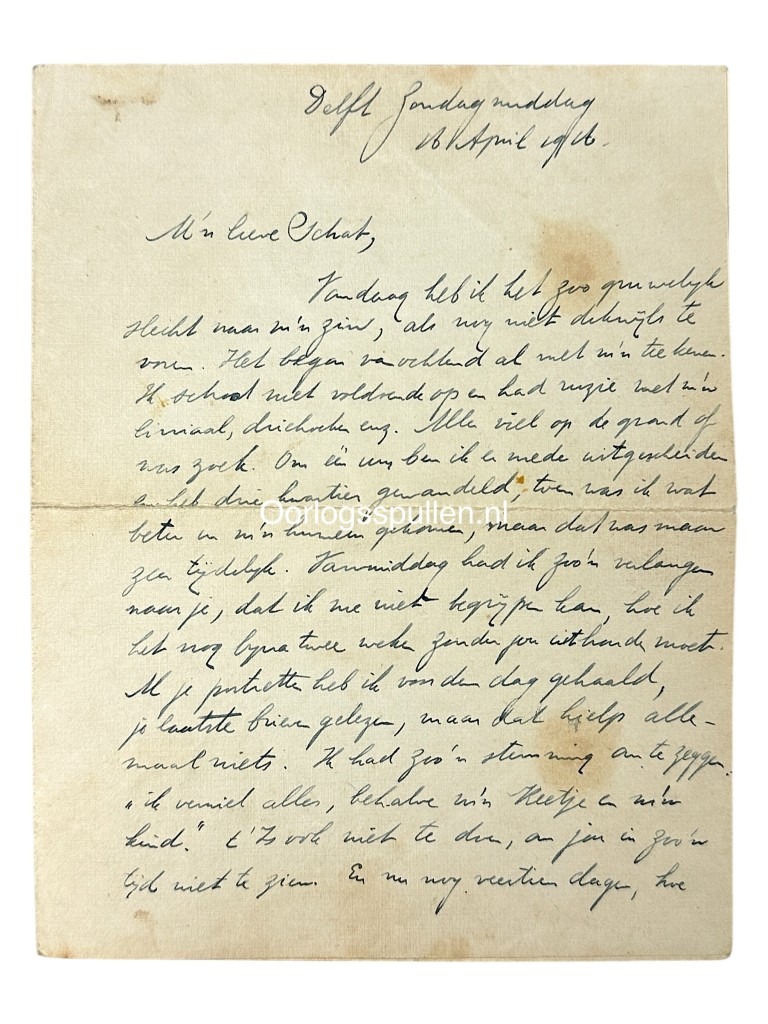 Delft Zondagmiddag
16 April 1916.
M'n lieve Schat,
Vandaag heb ik het zoo gruwelijk
slecht naar m'n zin, als nog niet dikwijls te
voren. Het begon vanochtend al met m'n teekenen.
Ik schoot niet voldoende op en had ruzie met m'n
liniaal, driehoeken enz. Alles viel op de grond of
was zoek. Om één uur ben ik er mede uitgescheiden
en heb drie kwartier gewandeld, toen was ik wat
Oorlogsspullen.nl
beter in m'n humeur gekomen, maar dat was maar
zeer tijdelijk. Vanmiddag had ik zoo'n verlangen
naar je, dat ik me niet begrijpen kan, hoe ik
het nog bijna twee weken zonder jou uithouden moet.
Al je portretten heb ik voor den dag gehaald,
je laatste brieven gelezen, maar dat hielp alle-
maal niets. Ik had zoo'n stemming om te zeggen:
"ik verniel alles, behalve m'n Keetje en m'n
kind." t' Is ook niet te doen, om jou in zoo'n
tijd niet te zien. En nu nog veertien dagen, hoe